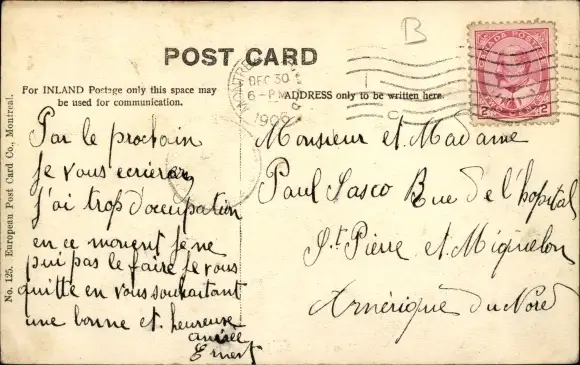 B
POST CARD
CANADA POSTAGE
For INLAND Postage only this space may
be used for communication.
ADDRESS only to be written here.
MONTREAL
DEC 30
6-PM
1906
Par le prochain
je vous ecrierai
j'ai trop d'occupation
en ce moment je ne
pui pas le faire je vous
quitte en vous souhaitant
une bonne et heureuse
année
Ernest
Monsieur et Madame
Paul Sasco Rue de l'hopital
St Pierre et Miquelon
Amérique du Nord
No. 125. European Post Card Co., Montreal.